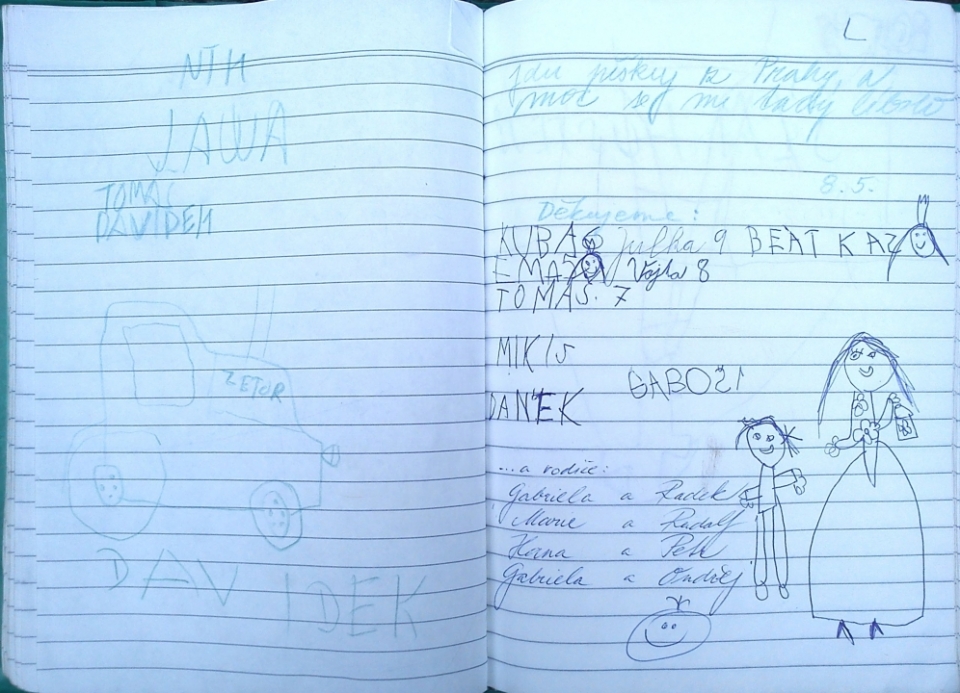 JAWA
TOMÁŠ
ZETOR
DAVIDEK
L
jdu pěšky z Prahy, a
moc se mi tady líbilo
8.5.
Děkujeme:
KUBA 6 Julka 9 BEÁTKA 7
EMA Vojta 8
TOMÁŠ. 7
MIKI 5
DANEK
GABO
...a rodiče:
Gabriela a Radek
Marie a Rudolf
Hana a Petr
Gabriela a Ondřej